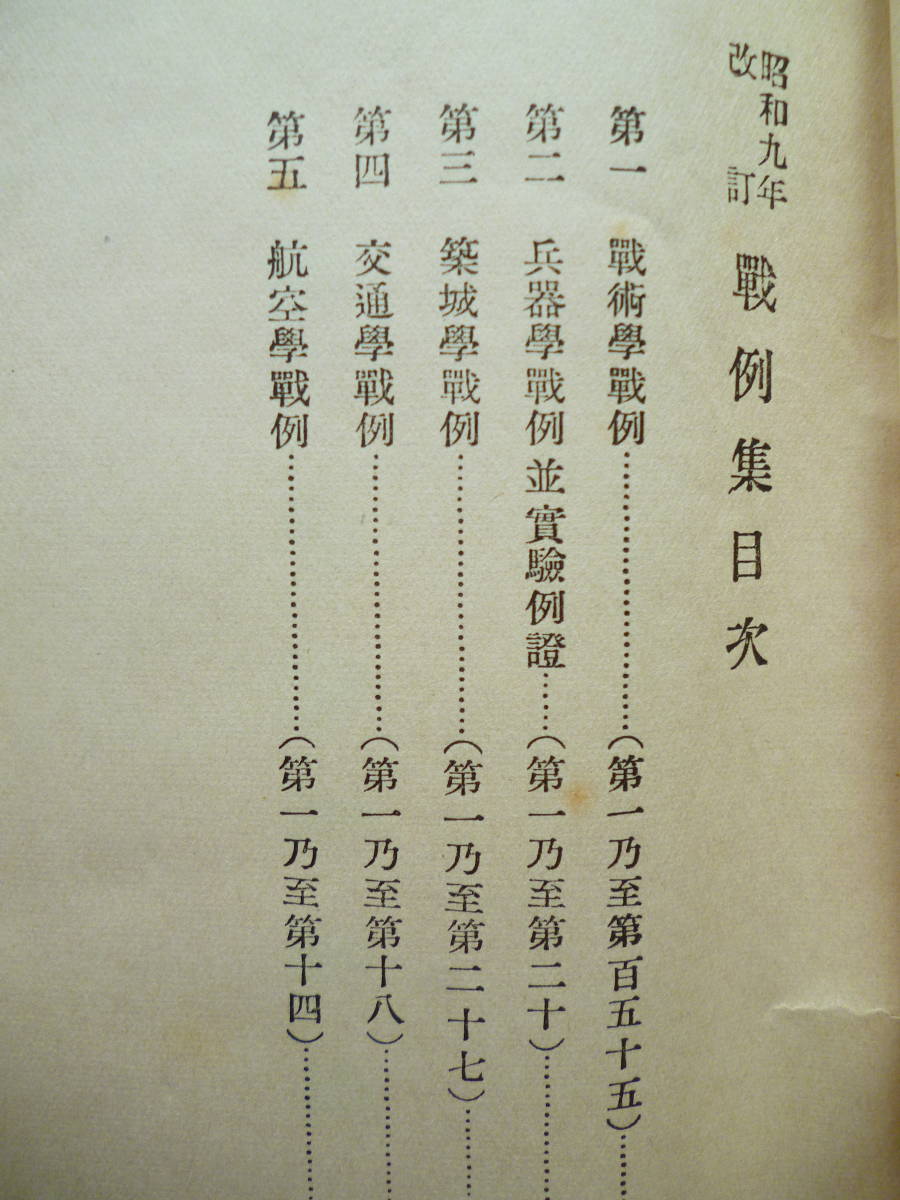 昭和九年改訂 戰例集目次
第一 戰術學戰例……………………(第一乃至第百五十五)……
第二 兵器學戰例並實驗例證……(第一乃至第二十)……
第三 築城學戰例……………………(第一乃至第二十七)……
第四 交通學戰例……………………(第一乃至第十八)……
第五 航空學戰例……………………(第一乃至第十四)……